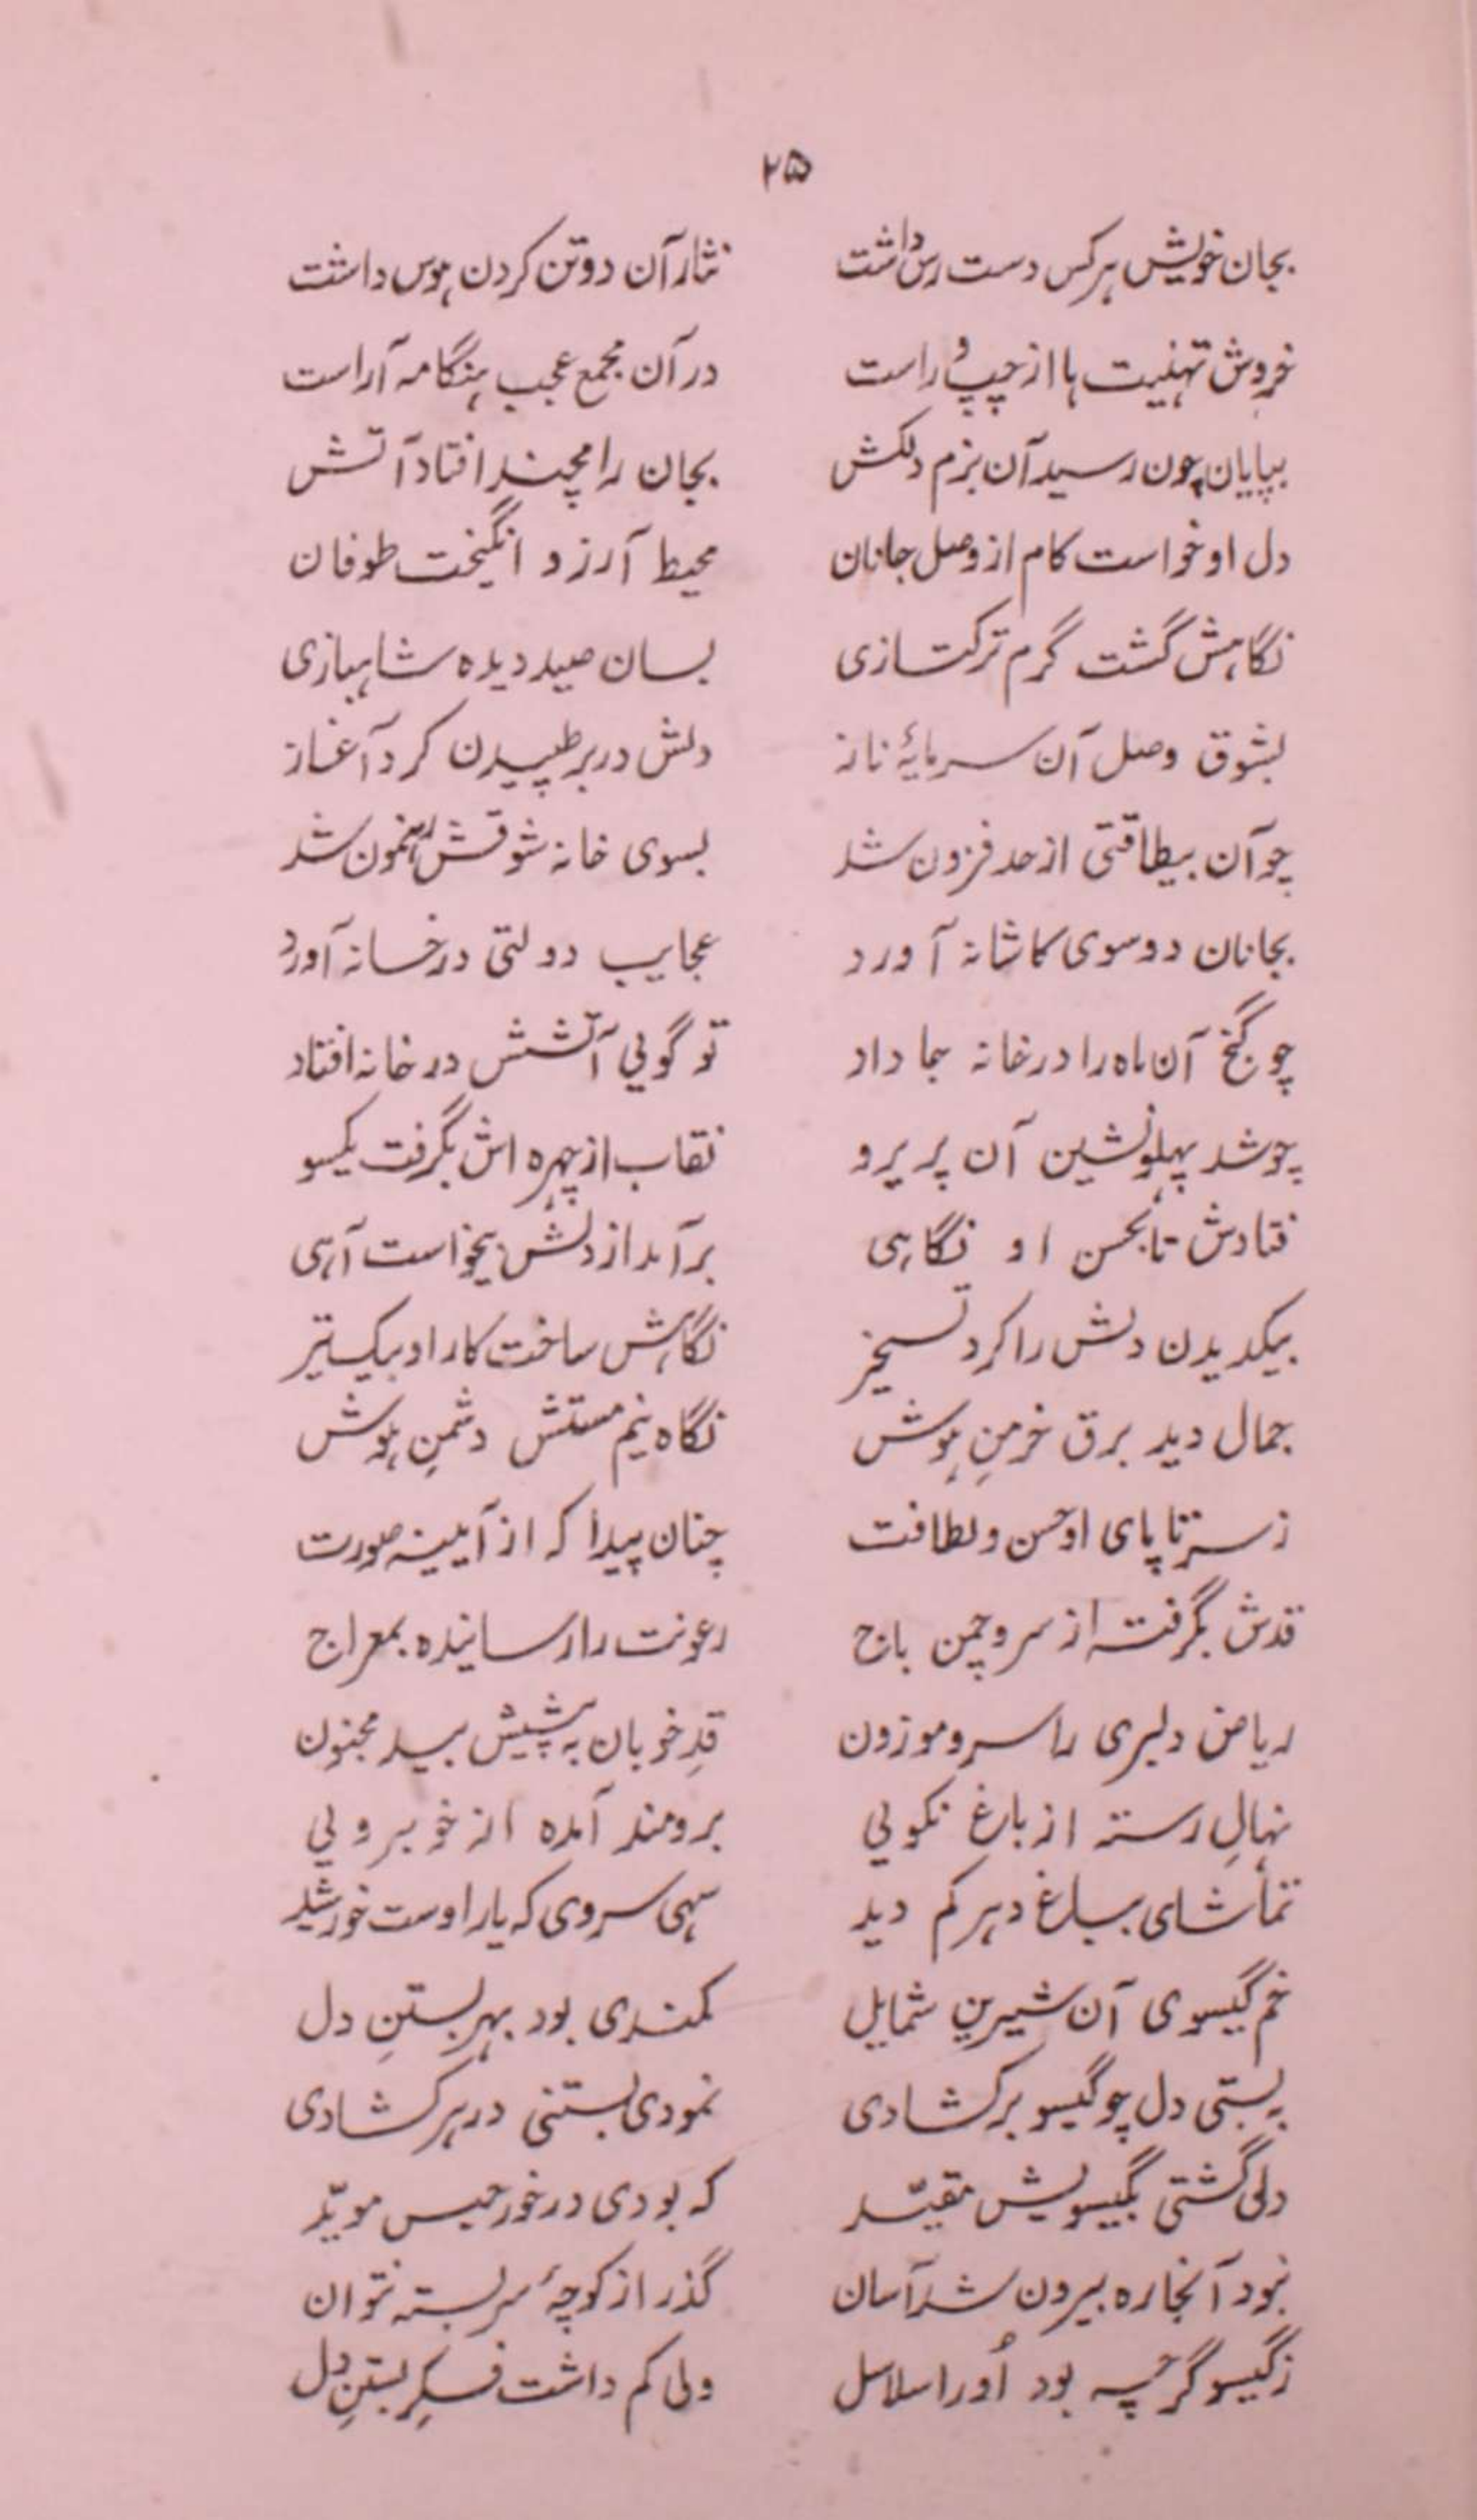 ۲۵
بجان خویش هر کس دست رس داشت نثار آن دو تن کردن هوس داشت
خروش تهنیت ها از چپ و راست در آن مجمع عجب هنگامه آراست
بپایان چون رسید آن بزم دلکش بجان رامچند افتاد آتش
دل او خواست کام از وصل جانان محیط آرزو انگیخت طوفان
نگاهش گشت گرم ترکتازی بسان صید دیده شاهبازی
بشوق وصل آن سرمایهٔ ناز دلش در بر طپیدن کرد آغاز
چو آن بیطاقتی از حد فزون شد بسوی خانه شوقش رهنمون شد
بجانان رو سوی کاشانه آورد عجایب دولتی در خانه آورد
چو گنج آن ماه را در خانه جا داد تو گویی آتشش در خانه افتاد
چو شد پهلونشین آن پریرو نقاب از چهره اش بگرفت یکسو
فتادش تا بحسن او نگاهی برآمد از دلش بیخواست آهی
بیکدیدن دلش را کرد تسخیر نگاهش ساخت کار او بیک تیر
جمال دید برق خرمنِ هوش نگاه نیم مستش دشمنِ هوش
ز سر تا پای او حسن و لطافت چنان پیدا که از آیینه صورت
قدش بگرفته از سرو چمن باج رعونت را رسانیده بمعراج
ریاض دلبری را سرو موزون قدِ خوبان به پیشش بید مجنون
نهالِ رسته از باغ نکویی برومند آمده از خوبرویی
تماشای بباغ دهر کم دید سهی سروی که بار اوست خورشید
خم گیسوی آن شیرین شمایل کمندی بود بهر بستنِ دل
ببستی دل چو گیسو برکشادی نمودی بستنی در هر کشادی
دلی گشتی بگیسویش مقیّد که بودی در خور حبس مویّد
نبود آنجا ره بیرون شد آسان گذر از کوچهٔ سربسته نتوان
ز گیسو گرچه بود اُو را سلاسل ولی کم داشت فکرِ بستنِ دل